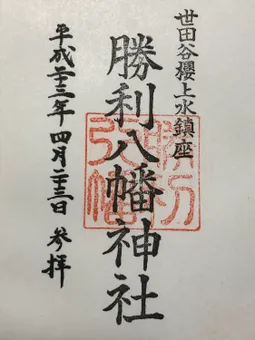 世田谷櫻上水鎮座
勝利八幡神社
勝利八幡
平成二十三年四月二十三日参拝